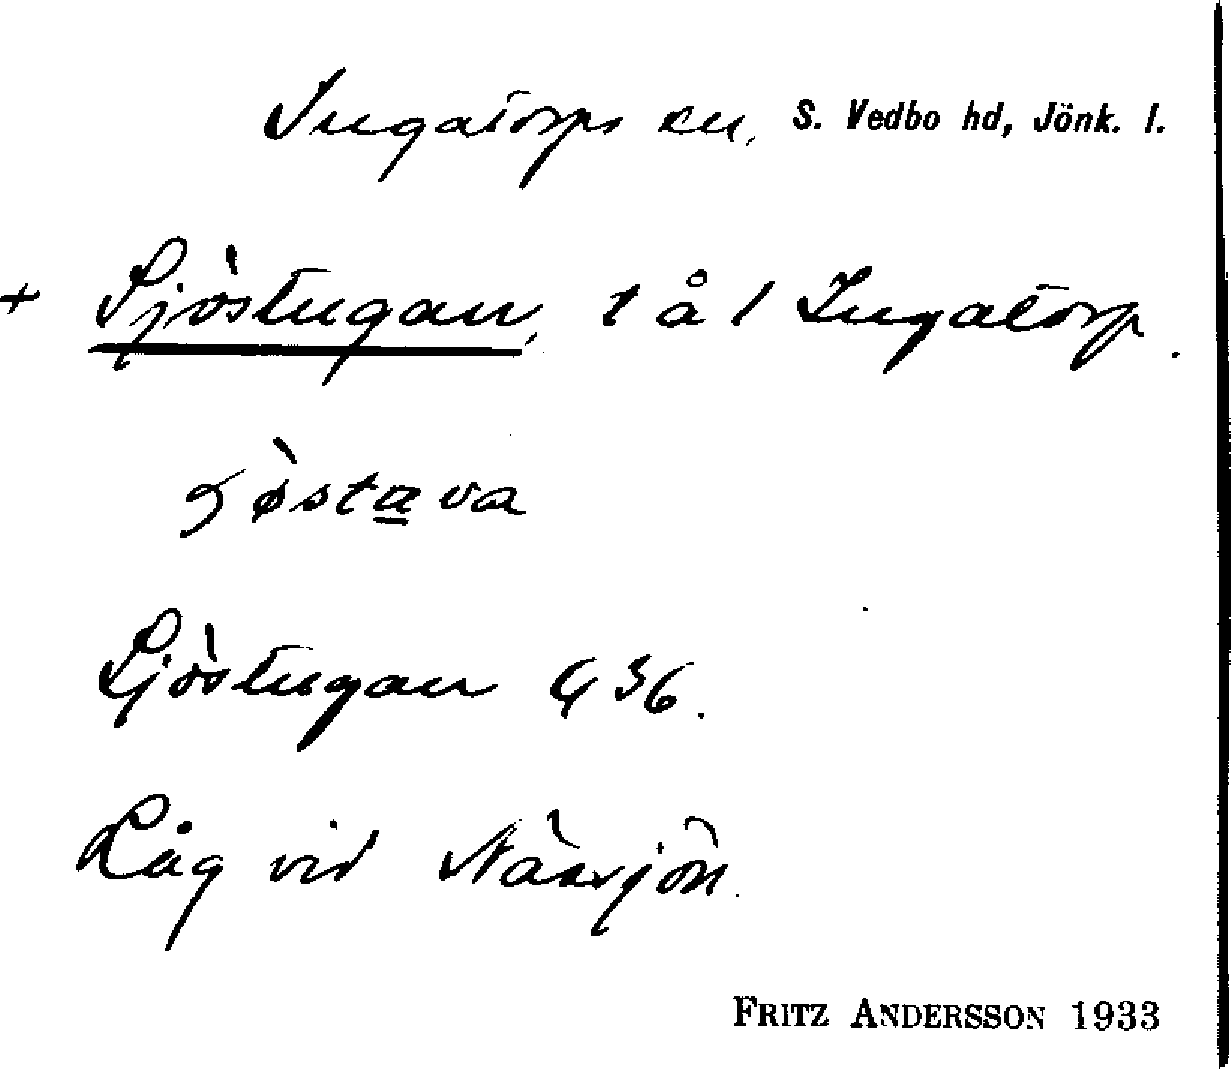 Ingatorps sn, S. Vedbo hd, Jönk. l.
+ Sjöstugan, t å l Ingatorp.
Sjöstugan G 36.
Låg vid Nässjön.
FRITZ ANDERSSON 1933